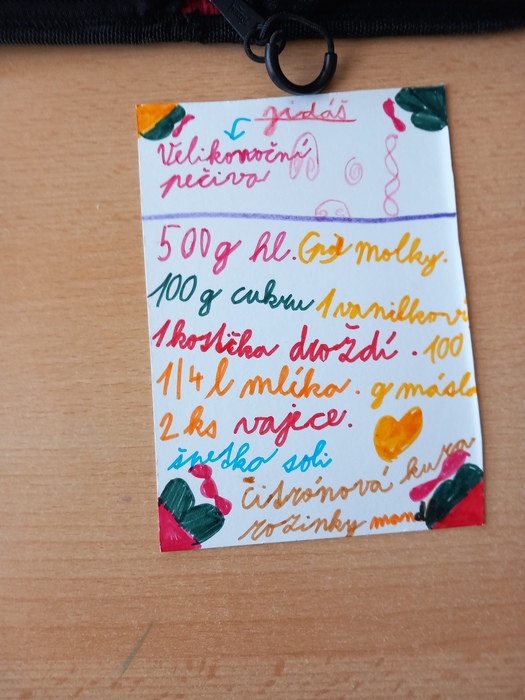 jidáš
Velikonoční
pečivo
500g hl. molky.
100 g cukru 1 vanilkový
1 kostička droždí. 100
1/4 l mlíka. g másla
2 ks vajece.
špetka soli
Citrónová kura
rozinky mand